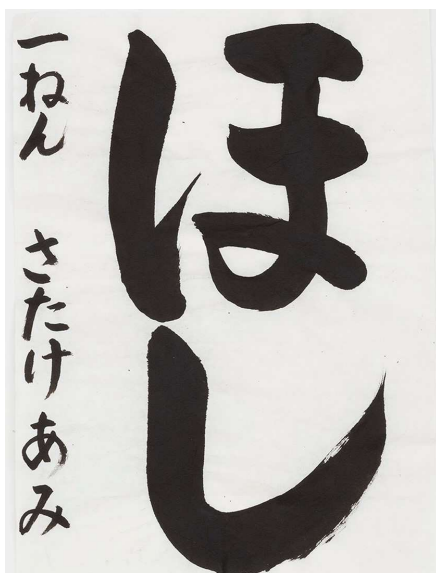 ほし
一ねん さたけ あみ